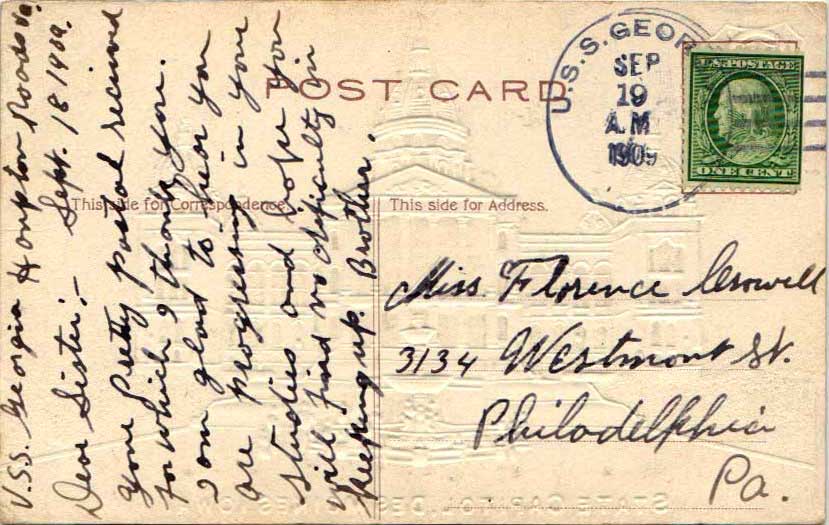 POST CARD
This side for Correspondence.
This side for Address.
U.S.S. GEOR
SEP
19
A.M
1909
U.S. POSTAGE
ONE CENT
U.S.S. Georgia Hampton Roads Va.
Sept. 18 1909.
Dear Sister;-
Your Pretty postal received
for which I thank you.
I am glad to hear you
are progressing in your
studies and hope you
will find no dificulty in
keeping up. Brother.
Miss. Florence Crowell
3134 Westmont St.
Philadelphia
Pa.
STATE CAPITOL, DES